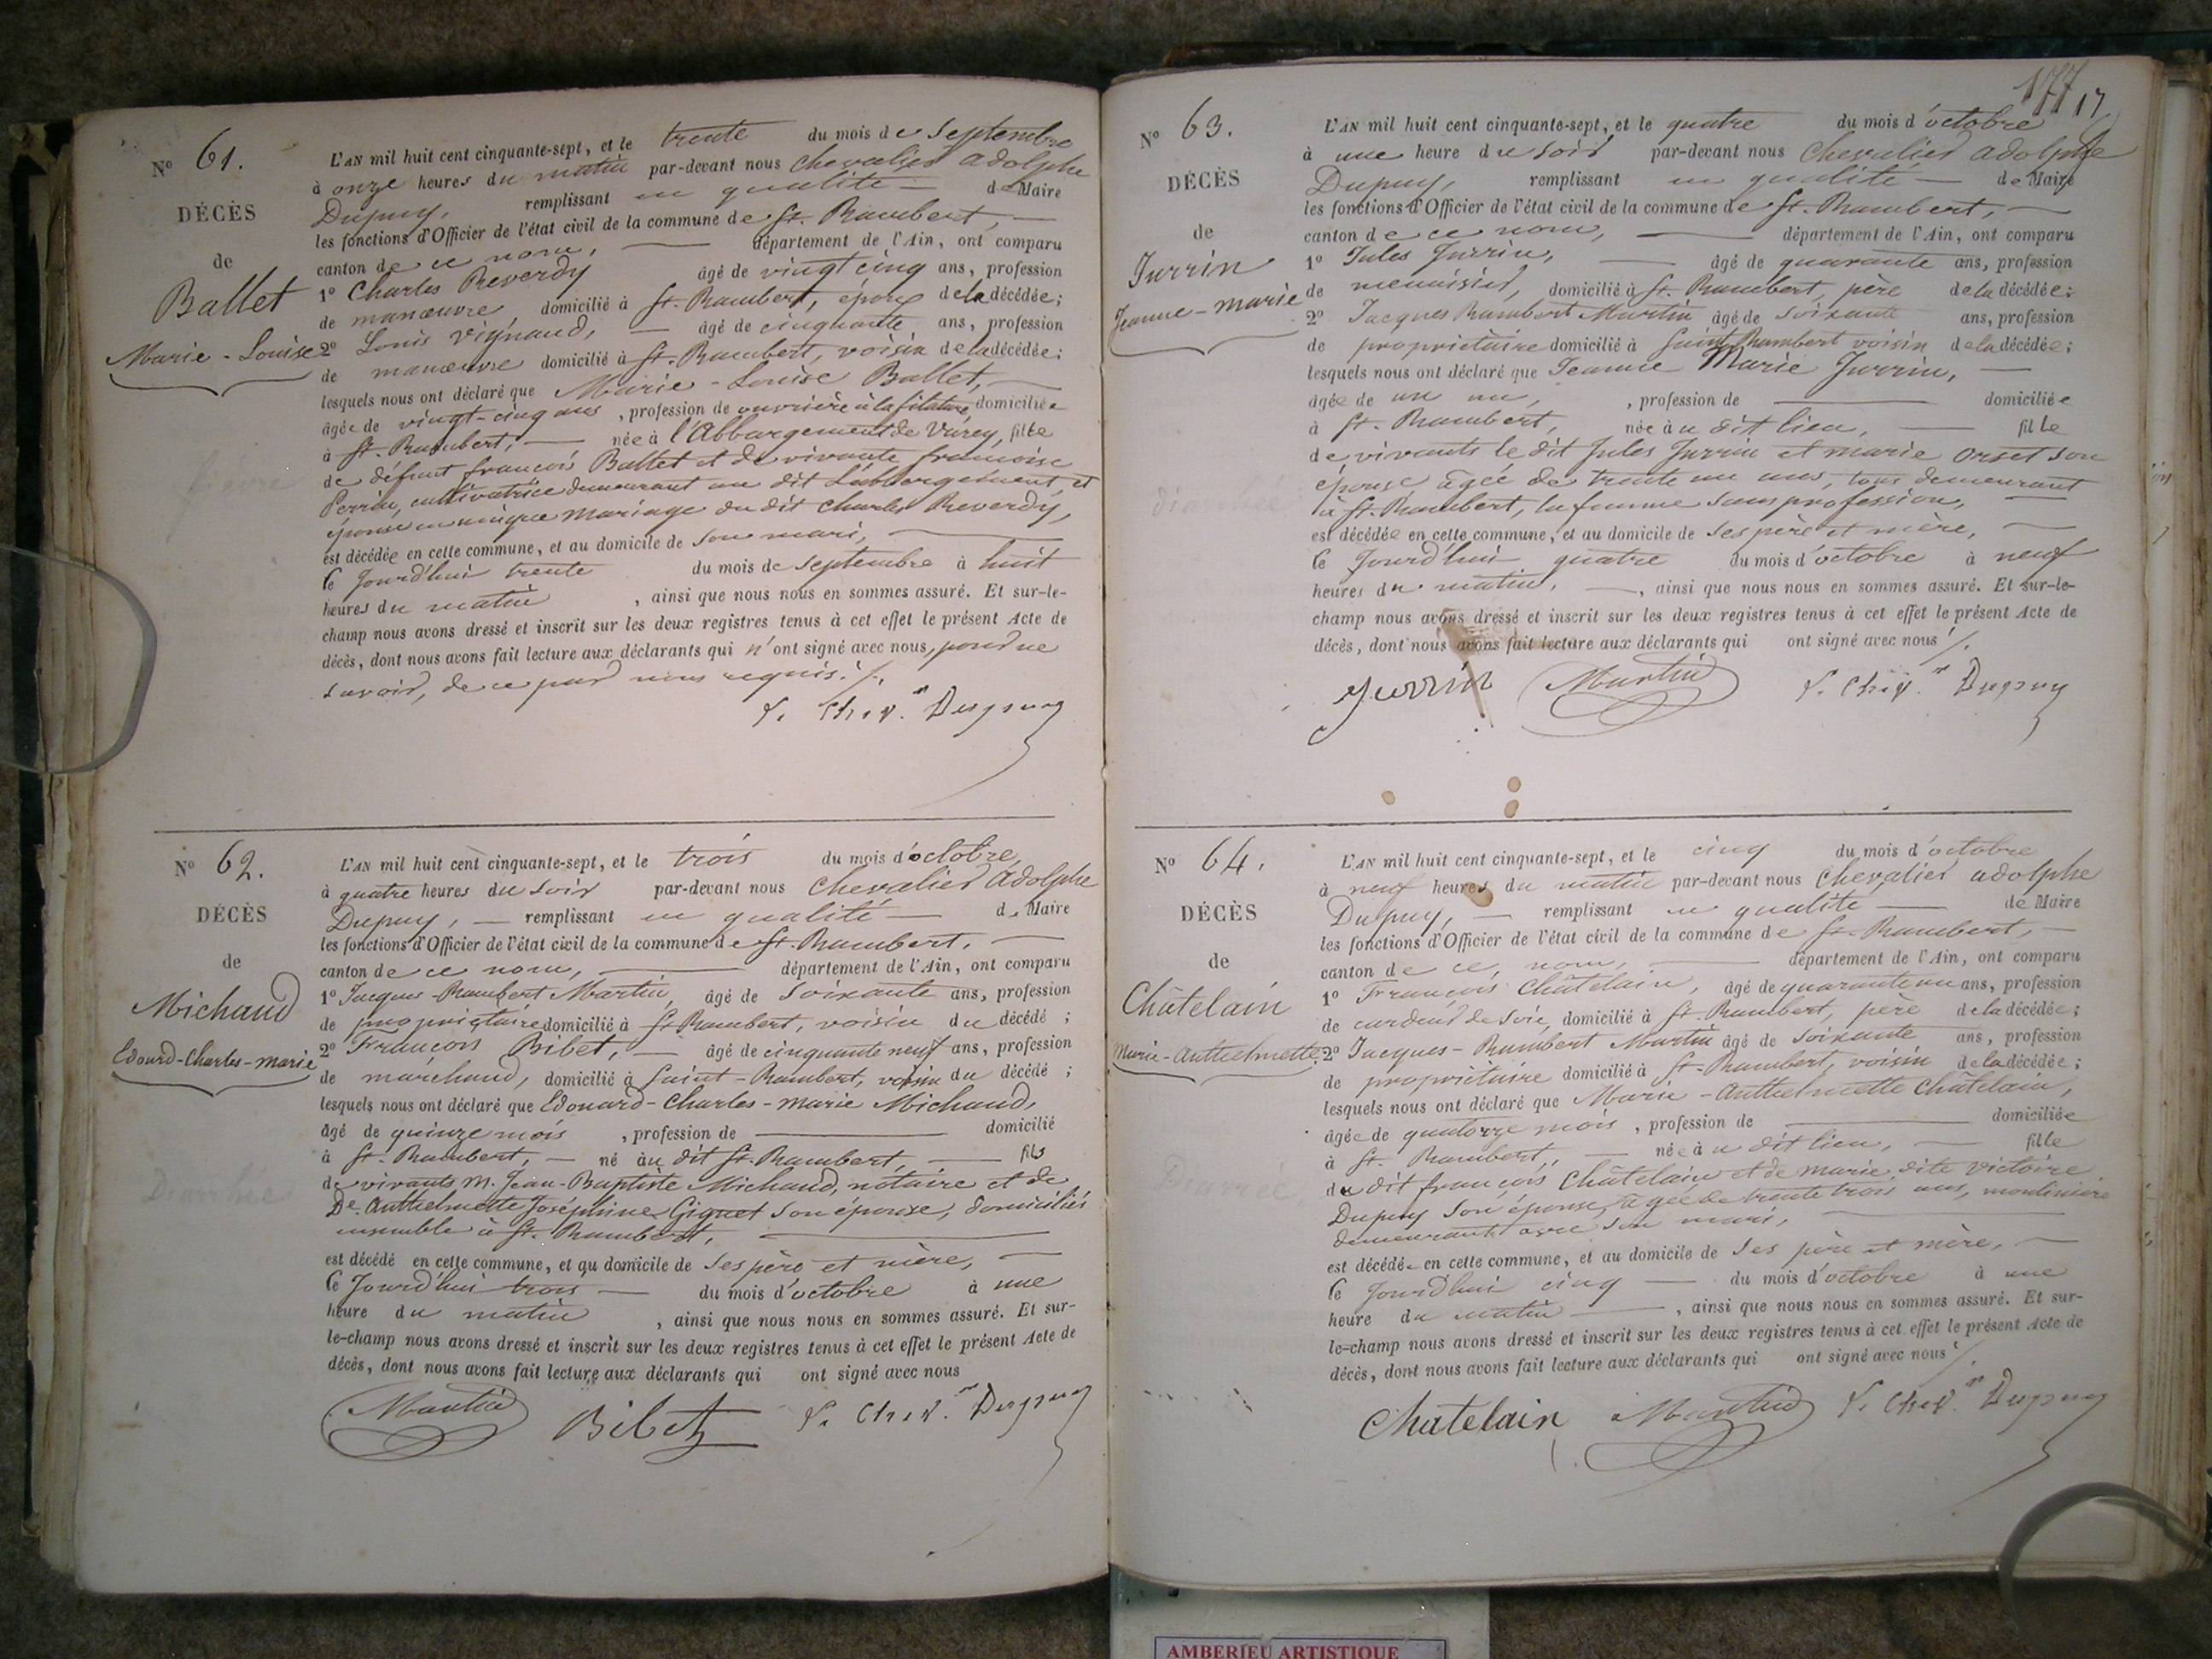 N° 61.
DÉCÈS
de
Ballet
Marie-Louise
L'AN mil huit cent cinquante-sept, et le trente du mois de Septembre
à onze heures du matin par-devant nous Chevalier Adolphe
Dupuy, remplissant en qualité de Maire
les fonctions d'Officier de l'état civil de la commune de St. Rambert,
canton de ce nom, département de l'Ain, ont comparu
1° Charles Reverdy âgé de vingt cinq ans, profession
de manœuvre, domicilié à St. Rambert, époux de la décédée;
2° Louis Vignaud, âgé de cinquante ans, profession
de manœuvre domicilié à St. Rambert, voisin de la décédée;
lesquels nous ont déclaré que Marie-Louise Ballet,
âgée de vingt-cinq ans, profession de ouvrière à la filature, domiciliée
à St. Rambert, née à l'Abbargement de Varey, fille
de défunt françois Ballet et de vivante françoise
Perrin, cultivatrice demeurant au dit L'abbargement, et
épouse en unique mariage du dit Charles Reverdy,
est décédée en cette commune, et au domicile de son mari,
le Jourd'hui trente du mois de Septembre à huit
heures du matin, ainsi que nous nous en sommes assuré. Et sur-le-
champ nous avons dressé et inscrit sur les deux registres tenus à cet effet le présent Acte de
décès, dont nous avons fait lecture aux déclarants qui n'ont signé avec nous, pour ne
savoir, de ce par nous requis ./.
Chev. Dupuy
N° 62.
DÉCÈS
de
Michaud
Edourd-Charles-Marie
L'AN mil huit cent cinquante-sept, et le trois du mois d'octobre,
à quatre heures du soir par-devant nous Chevalier Adolphe
Dupuy, remplissant en qualité de Maire
les fonctions d'Officier de l'état civil de la commune de St. Rambert,
canton de ce nom, département de l'Ain, ont comparu
1° Jacques-Rambert Martin âgé de Soixante ans, profession
de propriétaire domicilié à St. Rambert, voisin du décédé;
2° François Bibet, âgé de cinquante neuf ans, profession
de marchand, domicilié à Saint-Rambert, voisin du décédé;
lesquels nous ont déclaré que Edouard-Charles-marie Michaud,
âgé de quinze mois, profession de domicilié
à St. Rambert, né au dit St. Rambert, fils
de vivants M. Jean-Baptiste Michaud, notaire et de
De. Anthelmette Joséphine Giguet son épouse, domiciliés
ensemble à St. Rambert,
est décédé en cette commune, et au domicile de ses père et mère,
le Jourd'hui trois du mois d'octobre à une
heure du matin, ainsi que nous nous en sommes assuré. Et sur-
le-champ nous avons dressé et inscrit sur les deux registres tenus à cet effet le présent Acte de
décès, dont nous avons fait lecture aux déclarants qui ont signé avec nous
Martin Bibet Chev. Dupuy
177 17
N° 63.
DÉCÈS
de
Jurrin
Jeanne-marie
L'AN mil huit cent cinquante-sept, et le quatre du mois d'octobre
à une heure du soir par-devant nous Chevalier Adolphe
Dupuy, remplissant en qualité de Maire
les fonctions d'Officier de l'état civil de la commune de St. Rambert,
canton de ce nom, département de l'Ain, ont comparu
1° Jules Jurrin, âgé de quarante ans, profession
de menuisier, domicilié à St. Rambert, père de la décédée;
2° Jacques Rambert Martin âgé de soixante ans, profession
de propriétaire domicilié à Saint Rambert voisin de la décédée;
lesquels nous ont déclaré que Jeanne Marie Jurrin,
âgée de un an, profession de domiciliée
à St. Rambert, née au dit lieu, fille
de vivants le dit Jules Jurrin et marie orset son
épouse âgée de trente un ans, tous demeurant
à St. Rambert, la femme sans profession,
est décédée en cette commune, et au domicile de ses père et mère,
le Jourd'hui quatre du mois d'octobre à neuf
heures du matin, ainsi que nous nous en sommes assuré. Et sur-le-
champ nous avons dressé et inscrit sur les deux registres tenus à cet effet le présent Acte de
décès, dont nous avons fait lecture aux déclarants qui ont signé avec nous ./.
Jurrin Martin Chev. Dupuy
N° 64.
DÉCÈS
de
Châtelain
Marie-Anthelmette
L'AN mil huit cent cinquante-sept, et le cinq du mois d'octobre
à neuf heures du matin par-devant nous Chevalier adolphe
Dupuy, remplissant en qualité de Maire
les fonctions d'Officier de l'état civil de la commune de St. Rambert,
canton de ce nom, département de l'Ain, ont comparu
1° François Châtelain, âgé de quarante un ans, profession
de cardeur de soie, domicilié à St. Rambert, père de la décédée;
2° Jacques-Rambert Martin âgé de soixante ans, profession
de propriétaire domicilié à St. Rambert, voisin de la décédée;
lesquels nous ont déclaré que Marie-Anthelmette Châtelain,
âgée de quatorze mois, profession de domiciliée
à St. Rambert, née au dit lieu, fille
du dit françois Châtelain et de marie dite victoire
Dupuy son épouse, âgée de trente trois ans, moulinière
demeurant avec son mari,
est décédée en cette commune, et au domicile de ses père et mère,
le Jourd'hui cinq du mois d'octobre à une
heure du matin, ainsi que nous nous en sommes assuré. Et sur-
le-champ nous avons dressé et inscrit sur les deux registres tenus à cet effet le présent Acte de
décès, dont nous avons fait lecture aux déclarants qui ont signé avec nous ./.
Chatelain Martin Chev. Dupuy
AMBERIEU ARTISTIQUE